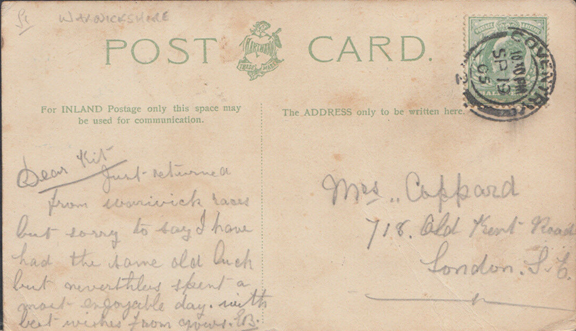 WARWICKSHIRE
POST CARD.
For INLAND Postage only this space may
be used for communication.
The ADDRESS only to be written here.
COVENTRY
SP 19
05
Dear Kit
Just returned
from warwick races
but sorry to say I have
had the same old luck
but neverthless spent a
most enjoyable day. with
best wishes from yours.
Mrs ,, Coppard
718. Old Kent Road
London. S. E.